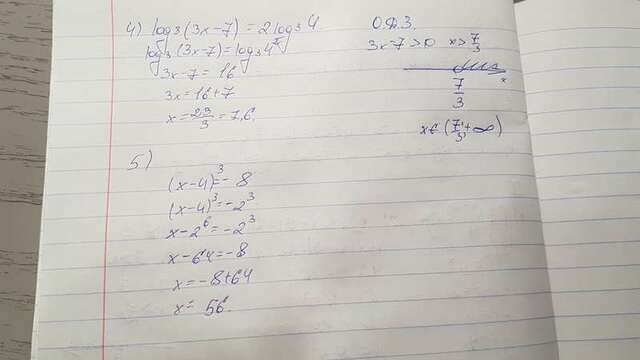 4) log₃(3x-7) = 2log₃4
log₃(3x-7) = log₃4²
3x-7 = 16
3x = 16+7
x = 23/3 = 7,6.
О.Д.З.
3x-7>0 x>7/3
7/3
x
x∈(7/3;+∞)
5)
(x-4)³=-8
(x-4)³=-2³
x-2⁶=-2³
x-64=-8
x=-8+64
x= 56.